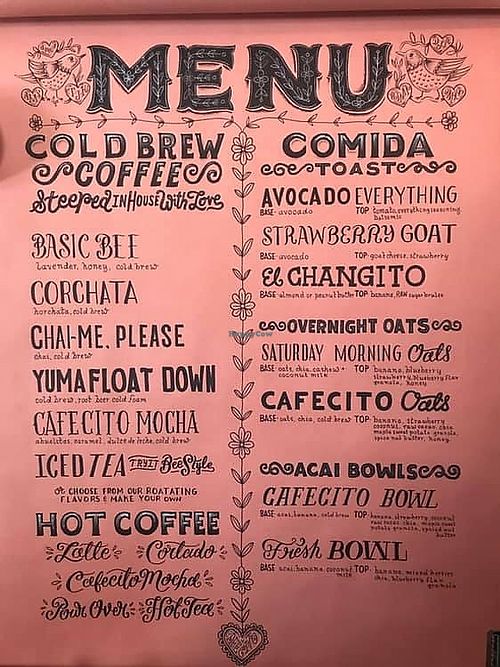 MENU
COLD BREW
COFFEE
Steeped IN House With Love
BASIC BEE
lavender, honey, cold brew
CORCHATA
horchata, cold brew
CHAI-ME, PLEASE
chai, cold brew
YUMA FLOAT DOWN
cold brew, root beer, cold foam
CAFECITO MOCHA
abuelitas, caramel, dulce de leche, cold brew
ICED TEA TRY IT Bee Style
OR CHOOSE FROM OUR ROATATING
FLAVORS & MAKE YOUR OWN
HOT COFFEE
Latte Cortado
Cafecito Mocha
Pour Over Hot Tea
COMIDA
TOAST
AVOCADO EVERYTHING
BASE- avocado TOP- tomato, everything seasoning,
balsamic
STRAWBERRY GOAT
BASE- avocado TOP- goat cheese, strawberry
El CHANGITO
BASE- almond or peanut butter TOP- banana, RAW sugar brulee
OVERNIGHT OATS
SATURDAY MORNING Oats
BASE- oats, chia, cashew + TOP- banana, blueberry
coconut milk strawberry, blueberry flax
granola, honey
CAFECITO Oats
BASE- oats, chia, cold brew TOP- banana, strawberry
coconut, raw cacao, chia
maple sweet potato granola,
spice nut butter, honey
ACAI BOWLS
CAFECITO BOWL
BASE- acai, banana, cold brew TOP- banana, strawberry, coconut
raw cacao, chia, maple sweet
potato granola, spice nut
butter
Fresh BOWL
BASE- acai, banana, coconut TOP- banana, mixed berries
milk chia, blueberry flax
granola
HappyCow